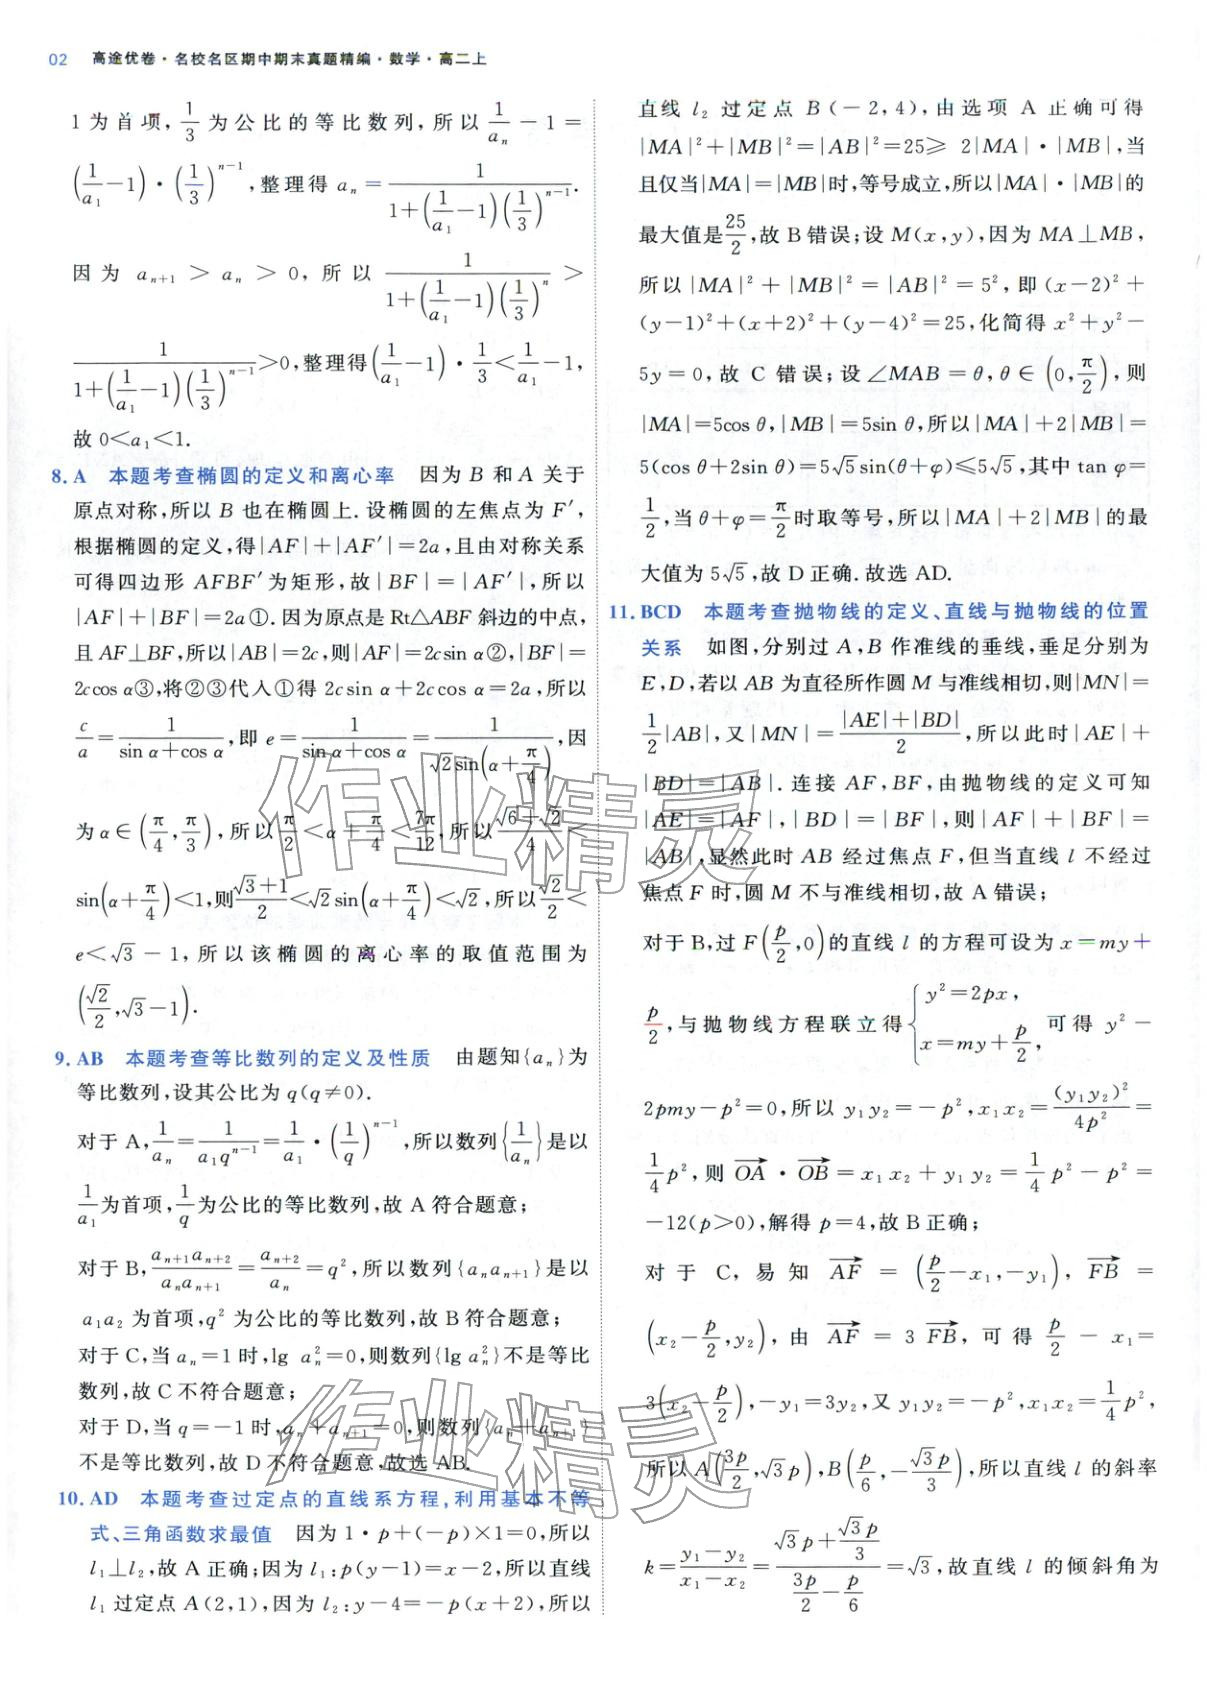 02 高途优卷·名校名区期中期末真题精编·数学·高二上
1为首项,1/3为公比的等比数列,所以1/aₙ-1=
(1/a₁-1)·(1/3)ⁿ⁻¹,整理得aₙ=1/(1+(1/a₁-1)(1/3)ⁿ⁻¹).
因为aₙ₊₁>aₙ>0,所以1/(1+(1/a₁-1)(1/3)ⁿ)>
1/(1+(1/a₁-1)(1/3)ⁿ⁻¹)>0,整理得(1/a₁-1)·1/3<1/a₁-1,
故0<a₁<1.
8. A 本题考查椭圆的定义和离心率 因为B和A关于
原点对称,所以B也在椭圆上.设椭圆的左焦点为F′,
根据椭圆的定义,得|AF|+|AF′|=2a,且由对称关系
可得四边形AFBF′为矩形,故|BF|=|AF′|,所以
|AF|+|BF|=2a①.因为原点是Rt△ABF斜边的中点,
且AF⊥BF,所以|AB|=2c,则|AF|=2csin α②,|BF|=
2ccos α③,将②③代入①得2csin α+2ccos α=2a,所以
c/a=1/(sin α+cos α),即e=1/(sin α+cos α)=1/(√2sin(α+π/4)),因
为α∈(π/4,π/3),所以π/2<α+π/4<7π/12,所以(√6+√2)/4<
sin(α+π/4)<1,则(√3+1)/2<√2sin(α+π/4)<√2,所以√2/2<
e<√3-1,所以该椭圆的离心率的取值范围为
(√2/2,√3-1).
9. AB 本题考查等比数列的定义及性质 由题知{aₙ}为
等比数列,设其公比为q(q≠0).
对于A,1/aₙ=1/(a₁qⁿ⁻¹)=1/a₁·(1/q)ⁿ⁻¹,所以数列{1/aₙ}是以
1/a₁为首项,1/q为公比的等比数列,故A符合题意;
对于B,(aₙ₊₁aₙ₊₂)/(aₙaₙ₊₁)=aₙ₊₂/aₙ=q²,所以数列{aₙaₙ₊₁}是以
a₁a₂为首项,q²为公比的等比数列,故B符合题意;
对于C,当aₙ=1时,lg aₙ²=0,则数列{lg aₙ²}不是等比
数列,故C不符合题意;
对于D,当q=-1时,aₙ+aₙ₊₁=0,则数列{aₙ+aₙ₊₁}
不是等比数列,故D不符合题意,故选AB.
10. AD 本题考查过定点的直线系方程,利用基本不等
式、三角函数求最值 因为1·p+(-p)×1=0,所以
l₁⊥l₂,故A正确;因为l₁:p(y-1)=x-2,所以直线
l₁过定点A(2,1),因为l₂:y-4=-p(x+2),所以
直线l₂过定点B(-2,4),由选项A正确可得
|MA|²+|MB|²=|AB|²=25≥2|MA|·|MB|,当
且仅当|MA|=|MB|时,等号成立,所以|MA|·|MB|的
最大值是25/2,故B错误;设M(x,y),因为MA⊥MB,
所以|MA|²+|MB|²=|AB|²=5²,即(x-2)²+
(y-1)²+(x+2)²+(y-4)²=25,化简得x²+y²-
5y=0,故C错误;设∠MAB=θ,θ∈(0,π/2),则
|MA|=5cos θ,|MB|=5sin θ,所以|MA|+2|MB|=
5(cos θ+2sin θ)=5√5sin(θ+φ)≤5√5,其中tan φ=
1/2,当θ+φ=π/2时取等号,所以|MA|+2|MB|的最
大值为5√5,故D正确.故选AD.
11. BCD 本题考查抛物线的定义、直线与抛物线的位置
关系 如图,分别过A,B作准线的垂线,垂足分别为
E,D,若以AB为直径所作圆M与准线相切,则|MN|=
1/2|AB|,又|MN|=(|AE|+|BD|)/2,所以此时|AE|+
|BD|=|AB|.连接AF,BF,由抛物线的定义可知
|AE|=|AF|,|BD|=|BF|,则|AF|+|BF|=
|AB|,显然此时AB经过焦点F,但当直线l不经过
焦点F时,圆M不与准线相切,故A错误;
对于B,过F(p/2,0)的直线l的方程可设为x=my+
p/2,与抛物线方程联立得{y²=2px, x=my+p/2,可得y²-
2pmy-p²=0,所以y₁y₂=-p²,x₁x₂=(y₁y₂)²/4p²=
1/4p²,则OA→·OB→=x₁x₂+y₁y₂=1/4p²-p²=
-12(p>0),解得p=4,故B正确;
对于C,易知AF→=(p/2-x₁,-y₁),FB→=
(x₂-p/2,y₂),由AF→=3FB→,可得p/2-x₁=
3(x₂-p/2),-y₁=3y₂,又y₁y₂=-p²,x₁x₂=1/4p²,
所以A(3p/2,√3p),B(p/6,-√3p/3),所以直线l的斜率
k=(y₁-y₂)/(x₁-x₂)=(√3p+√3p/3)/(3p/2-p/6)=√3,故直线l的倾斜角为
作业精灵
作业精灵